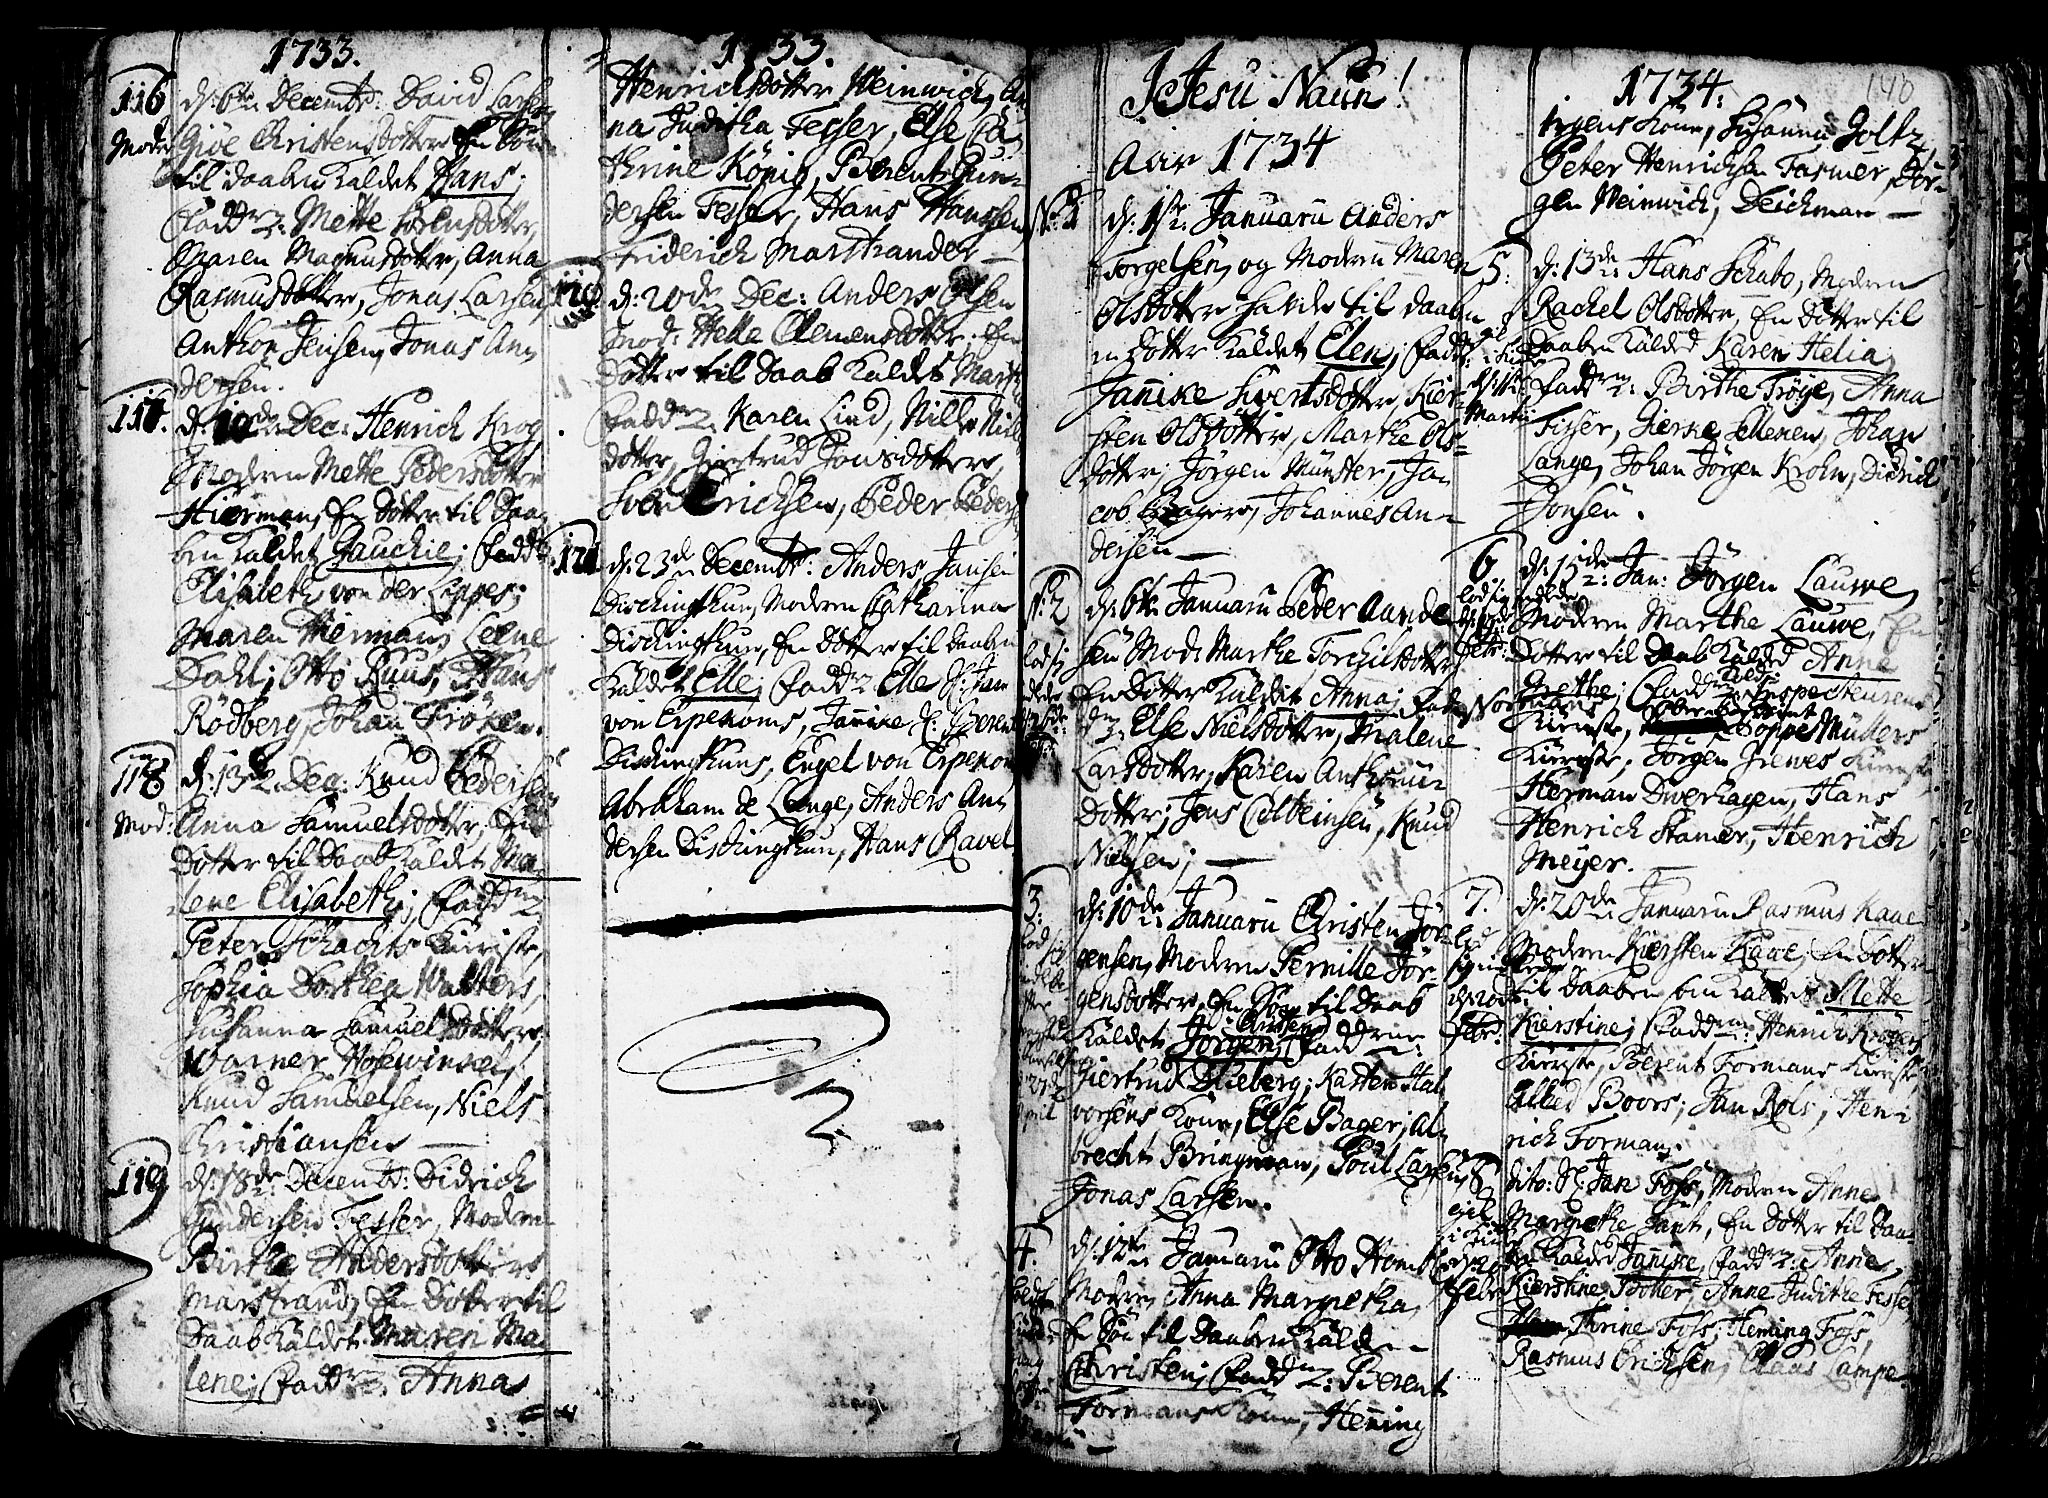 1733.
116 d: 6te Decembr: David Larsen
Mod: Gjöe Christensdotter En Sön
til daaben kaldet Hans;
Fadd: Mette Sörensdotter,
Maren Magnusdotter, Anna
Rasmusdotter, Jonas Larsen,
Anthon Jensen, Jonas An
dersen.
117. d: 10de Dec: Henrich Krog,
Modren Mette Pedersdotter
Hierman, En Dotter til Daa
ben kaldet Gauchie; Fadd:
Elisabeth von der Lippes;
Maren Hiermans, Leene
Dahl; Otto Ruus, Hans
Rödberg, Johan Fröken.
118 d: 13de Dec: Knud Pedersen
Mod: Anna Samuelsdotter, En
Dotter til Daab kaldet Ma
lene Elisabeth; Fadd:
Peter Schachts Kiereste,
Sophia Dorthea Walters,
Susanna Samuelsdotter,
Warner Hosewinsel,
Knud Samuelsen, Niels
Christiansen —
119 d: 18de Decembr: Didrich
Gundersen Fesser, Modren
Birthe Andersdotter
Marstrand, En Dotter til
Daab kaldet Maren Ma
lene; Fadd: Anna
1733.
Henrichsdotter Weinwich, An
na Juditha Fesser, Else Ca
thrine König, Berent Gun
dersen Fesser, Hans Hanssen,
Friderich Marstrander —
120 d: 20de Dec: Anders Olsen
Mod: Helle Clemensdotter. En
Dotter til Daab kaldet Marthe
Fadd: Karen Lind, Nille Niels
dotter, Giertrud Jonsdotter,
Sven Erichsen, Peder Peders
121 d: 23de Decembr: Anders Jansen
Dischingthun, Modren Catharina
Dischingthun, En Dotter til Daaben
kaldet Elle; Fadd: Elle Sl: Jan
von Erpekoms, Janike Sl: Berent
Dischingthuns, Engel von Erpekom
Abraham de Lange, Anders An
dersen Dischingthun, Hans Ravel
J Jesu Naun!
Aar 1734
No: 1 d: 1ste Januarii Anders
Torgelsen, og Modren Maren
Olsdotter havde til Daaben
en Dotter kaldet Elen; Fadd:
Janike Sivertsdotter, Kier-
sten Olsdotter, Marthe Ols-
dotter; Jörgen Münster, Ja
cob Bager, Johannes An-
dersen —
N: 2 d: 6te Januarii Peder Aande
lod sig sen Mod: Marthe Torchilsdotter
En Dotter kaldet Anna; Fad
der: Else Nielsdotter, Malene
Larsdotter, Karen Anthonii
dotter; Jens Colbeinsen, Knud
Nielsen; —
3. d: 10de Januarii Christen Jör-
lod sig gensen, Modren Pernille Jör-
gensdotter, En Sön til Daab
Christen
kaldet Jörgen; Faddrene:
Giertrud Fleberg; Karsten Hal
vorsens Kone, Else Bager; Al
brecht Bringman, Poul Larsen,
Jonas Larsen.
4. d: 12te Januarii Otto Homb
Modren Anna Margretha,
En Sön til Daaben kalde
Christen; Fadd: Berent
Formans Kone, Hening
1734.
140
Irgens Kone, Susanna Joltz,
Peter Henrichsen Fasmer, Jör-
gen Weinwich, Deichman —
5. d: 13de Hans Schabo, Modren
Rachel Olsdotter, En Dotter til
Daaben kalded Karen Helia,
Fadd: Birthe Tröye, Anna
Fisser, Gierke Sellexen, Johan
Lange, Johan Jörgen Krohn, Didrich
Jonsen.
6 d: 15de Jan: Jörgen Lauwe,
lod sig melde Modren Marthe Lauwe, En
Dotter til Daab kalded Anne
Grethe; Fadd: Inspecteuren
Normans Kiereste, Poppe Müllers
Kiereste, Jörgen Giewes Kiereste
Herman Diverhagen, Hans
Henrich Stamer, Henrich
Meyer.
7. d: 20de Januarii Rasmus Kaae
Modren Kiersten Kaae; En Dotter
til Daaben kaldet Mette
Kierstine; Fadd: Henrich Krögers
Kiereste, Berent Formans Kiereste,
Alled Boors; Jan Rols, Hen
rich Forman.
8 dito: Sl: Jan Foss, Modren Anne
Margrethe Jant, En Dotter til Daa-
ben kalded Janike, Fadd: Anne
Kierstine Botter, Anne Judithe Fesser
Thrine Foss; Heming Foss,
Rasmus Erichsen, Claas Lampe.